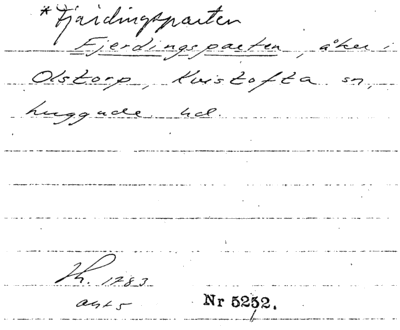 * Fjärdingsparten
Fjerdingsparten, åker i
Olstorp, Kvistofta sn,
Luggude hd.
Lh. 1783
akt 5
Nr 5252.